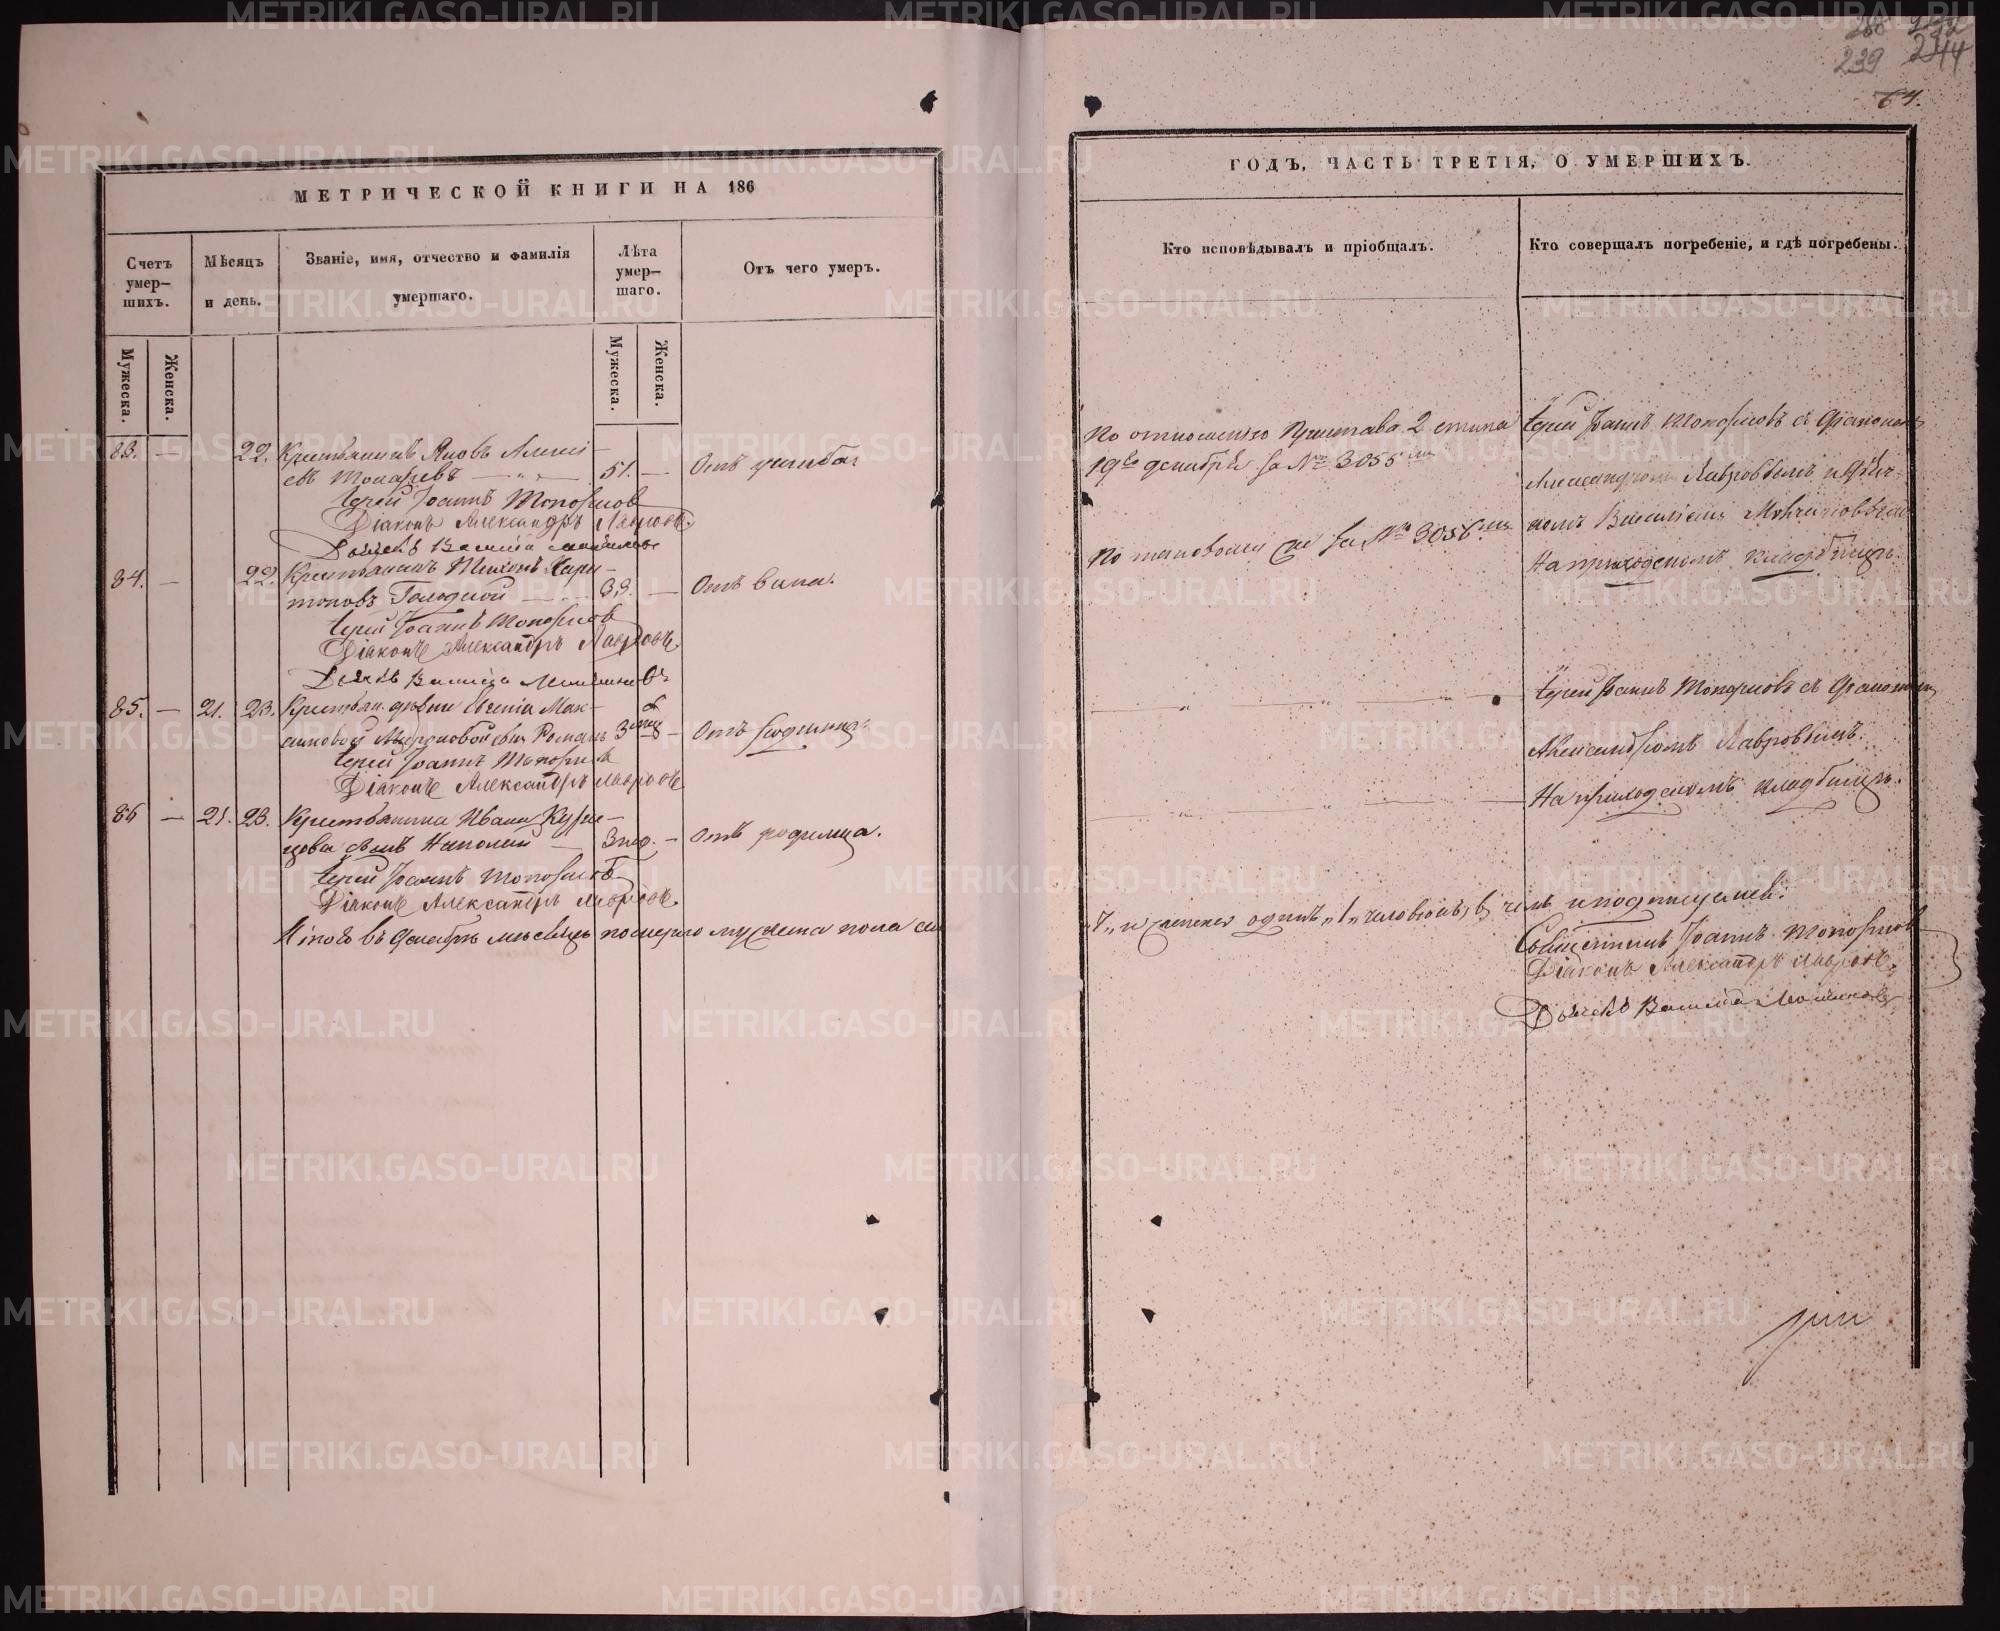 МЕТРИЧЕСКОЙ КНИГИ НА 186
Счетъ умер-шихъ.
Мѣсяцъ и день.
Званіе, имя, отчество и фамилія умершаго.
Лѣта умер-шаго.
Отъ чего умеръ.
Мужеска.
Женска.
Мужеска.
Женска.
83. — 22. Крестьянинъ Яковъ Алексі-
евъ 51. — Отъ ушиба.
Іерей Іоаннъ Топорковъ
Діаконъ Александръ Лавровъ.
Дьячекъ Василій
84. — 22. Крестьянинъ Тихонъ Хари-
тоновъ Голодной — 39. — Отъ вина.
Іерей Іоаннъ Топорковъ
Діаконъ Александръ Лавровъ.
Дьячекъ Василій
85. — 21. 23. Крестьян. дѣвки Евгенія Мак-
симовой сынъ Романъ 3 — Отъ родимца.
Іерей Іоаннъ Топорковъ
Діаконъ Александръ Лавровъ
86 — 21. 23. Крестьянина Ивана Кузне-
цова сынъ — 3 нед. — Отъ родимца.
Іерей Іоаннъ Топорковъ
Діаконъ Александръ Лавровъ.
Итого въ Декабрѣ мѣсяцѣ померло мужеска пола
239 244
64.
ГОДЪ, ЧАСТЬ ТРЕТІЯ, О УМЕРШИХЪ.
Кто исповѣдывалъ и пріобщалъ.
Кто совершалъ погребеніе, и гдѣ погребены.
По отношенію Пристава 2 стана
19го декабря за № 3055
По таковому же за № 3056
Іерей Іоаннъ Топорковъ съ Діакономъ
Александромъ Лавровымъ и Дьяч-
комъ Василіемъ
На приходскомъ кладбищѣ.
Іерей Іоаннъ Топорковъ съ Діакономъ
Александромъ Лавровымъ.
На приходскомъ кладбищѣ.
и женска одинъ „1„ человѣкъ, въ чемъ и подписуемся:
Священникъ Іоаннъ Топорковъ
Діаконъ Александръ Лавровъ.
Дьячекъ Василій
METRIKI.GASO-URAL.RU